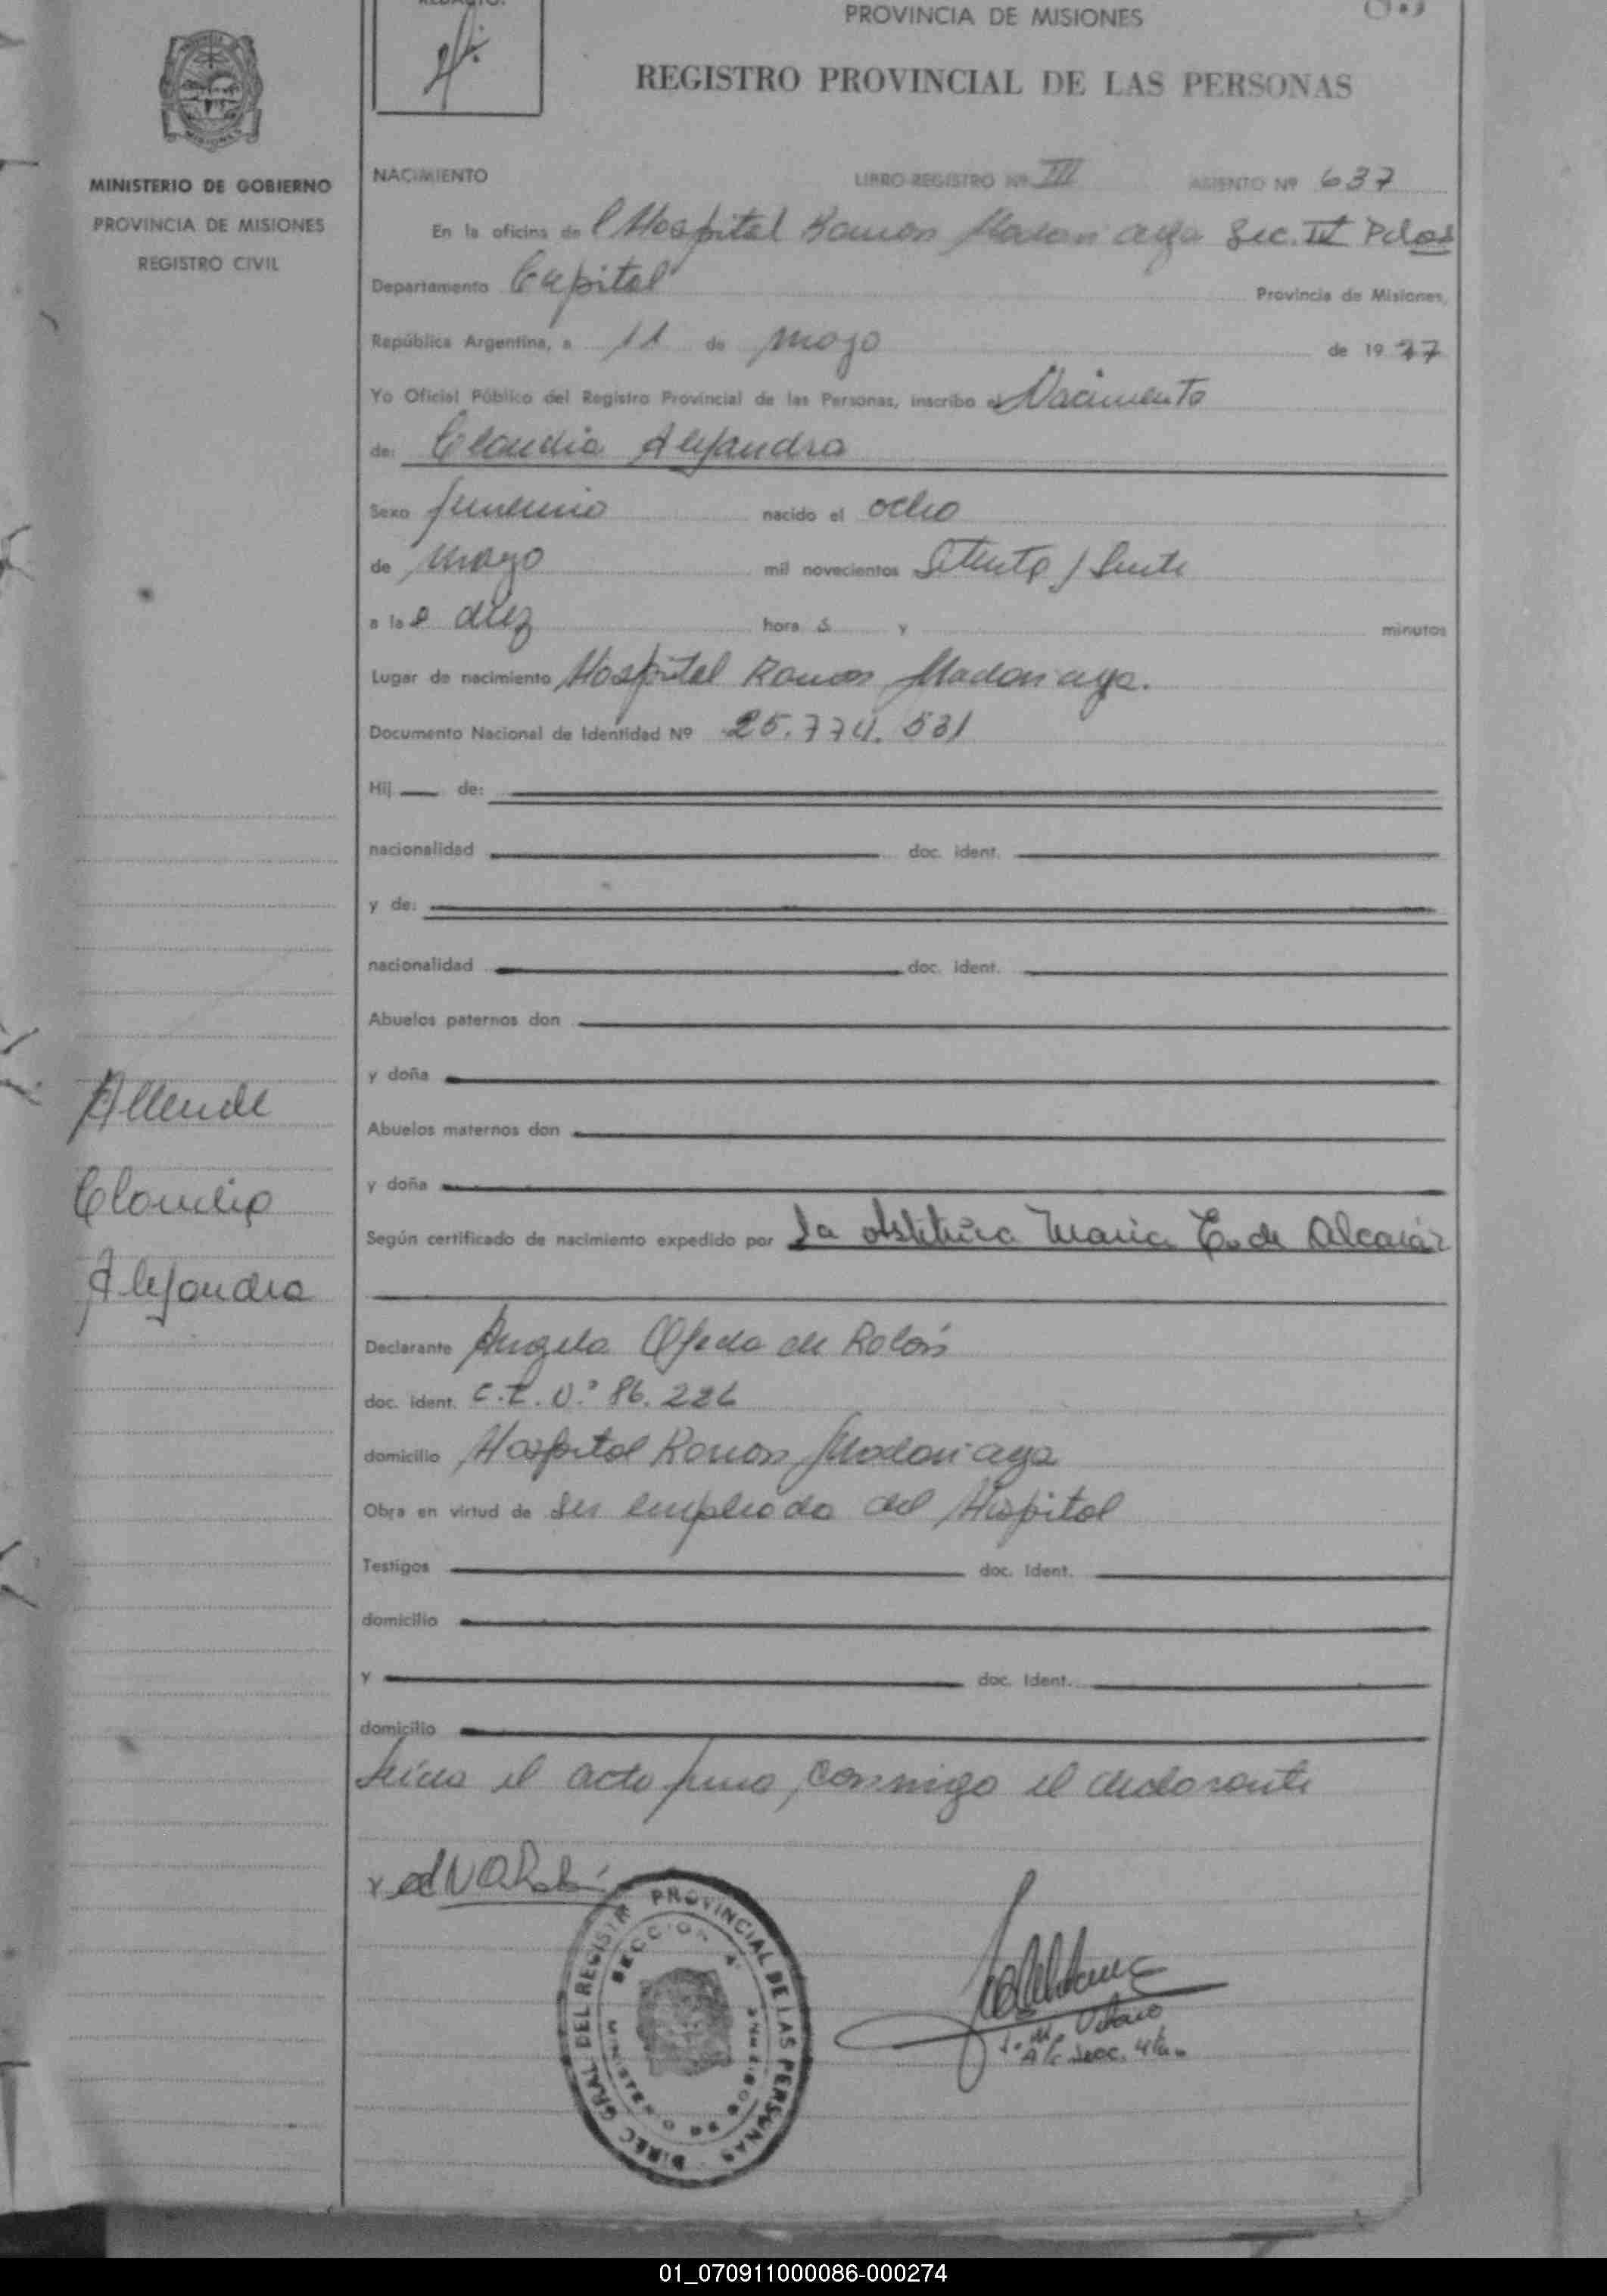 REDACTO:
PROVINCIA DE MISIONES
REGISTRO PROVINCIAL DE LAS PERSONAS
MINISTERIO DE GOBIERNO
PROVINCIA DE MISIONES
REGISTRO CIVIL
NACIMIENTO LIBRO REGISTRO Nº III ASIENTO Nº 637
En la oficina de l Hospital Ramon Madariaga Sec. IV Pdas
Departamento Capital Provincia de Misiones,
República Argentina, a 11 de mayo de 1977
Yo Oficial Público del Registro Provincial de las Personas, inscribo el Nacimiento
de: Claudia Alejandra
Sexo femenino nacido el ocho
de mayo mil novecientos Setenta y Siete
a las diez hora s y minutos
Lugar de nacimiento Hospital Ramon Madariaga.
Documento Nacional de Identidad Nº 25.774.531
Hij de:
nacionalidad doc. ident.
y de:
nacionalidad doc. ident.
Abuelos paternos don
y doña
Abuelos maternos don
y doña
Allende
Claudia
Alejandra
Según certificado de nacimiento expedido por la obstétrica Maria E. de Alcaráz
Declarante Angela Ojeda de Rolón
doc. ident. C.I. Nº 86.226
domicilio Hospital Ramon Madariaga
Obra en virtud de ser empleada del Hospital
Testigos doc. ident.
domicilio
y doc. ident.
domicilio
Leída el acta firma conmigo el declarante
DIREC. GRAL. DEL REGISTR PROVINCIAL DE LAS PERSONAS
SECCION 4ª
MINISTERIO DE GOBIERNO
01_070911000086-000274